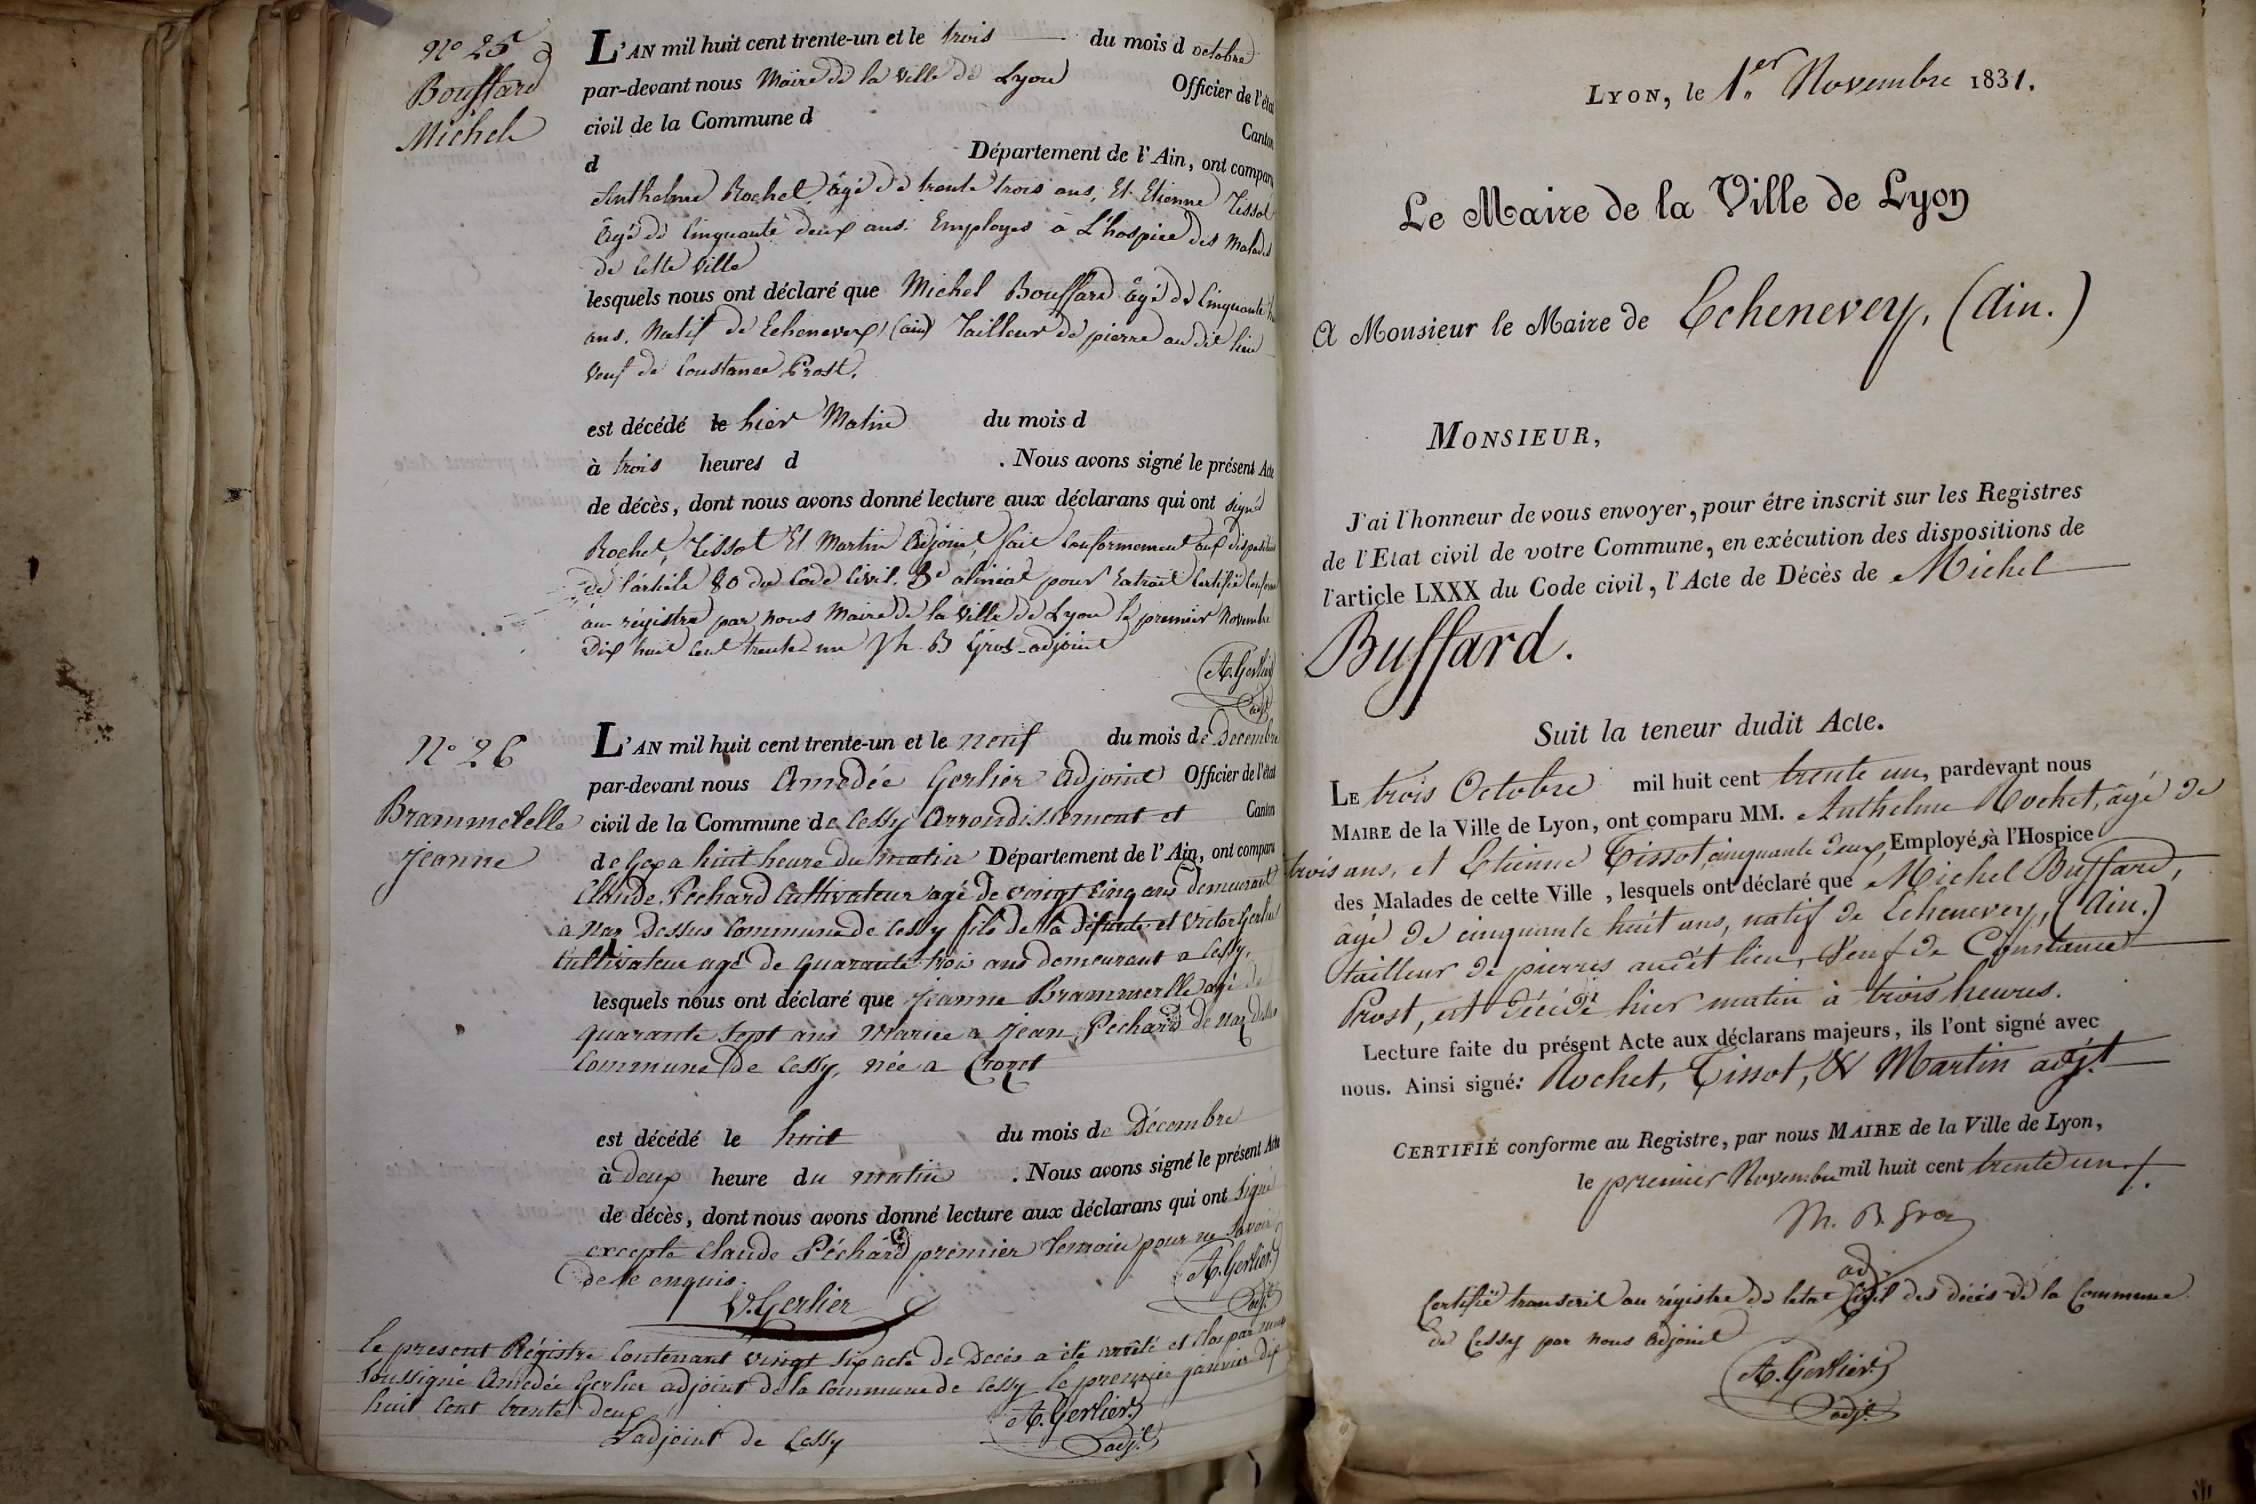 N° 25
Bouffard
Michel
L'AN mil huit cent trente-un et le trois du mois d octobre
par-devant nous Maire de la ville de Lyon Officier de l'état
civil de la Commune d Canton
d Département de l'Ain, ont comparu
Anthelme Rochet âgé de trente trois ans, Et Etienne Tissot
âgé de Cinquante deux ans. Employés à L'hospice des Malades
de Cette Ville
lesquels nous ont déclaré que Michel Bouffard âgé de Cinquante
ans. Natif de Echenevex (ain) Tailleur de pierre au dit lieu
Veuf de Constance Prost.
est décédé le hier Matin du mois d
à trois heures d . Nous avons signé le présent Acte
de décès, dont nous avons donné lecture aux déclarans qui ont signé
Rochet, Tissot Et Martin Adjoint, fait Conformement aux dispositions
de l'article 80 du Code Civil. 3e alinéat pour Extrait Certifié Conforme
au régistre par nous Maire de la Ville de Lyon le premier Novembre
Dix huit Cent trente un B Gros adjoint
A. Gerlier
adjt
N° 26
Brammerelle
Jeanne
L'AN mil huit cent trente-un et le neuf du mois de Decembre
par-devant nous Amedée Gerlier Adjoint Officier de l'état
civil de la Commune de Cessy Arrondissement et Canton
de Gex a huit heure du matin Département de l'Ain, ont comparu
Claude Pechard Cultivateur agé de vingt cinq ans demeurant
a Naz Dessus Commune de Cessy fils de la défunte et Victor Gerlier
Cultivateur agé de quarante trois ans demeurant a Cessy.
lesquels nous ont déclaré que Jeanne Brammerelle agé de
quarante sept ans Mariée a Jean Pechard de Naz dessus
Commune de Cessy, née a Crozet
est décédé le huit du mois de Décembre
à deux heure du matin . Nous avons signé le présent Acte
de décès, dont nous avons donné lecture aux déclarans qui ont signé
excepté Claude Péchard premier temoin pour ne savoir
de ce enquis.
V. Gerlier
A. Gerlier
adjt
le present Régistre Contenant vingt six acte de Decès a été arrêté et Clos par nous
Soussigné Amedée Gerlier adjoint de la Commune de Cessy le premier janvier dix
huit Cent trente deux
L'adjoint de Cessy
A. Gerlier
adjt
LYON, le 1.er Novembre 1831.
Le Maire de la Ville de Lyon
A Monsieur le Maire de Echenevey, (Ain.)
MONSIEUR,
J'ai l'honneur de vous envoyer, pour être inscrit sur les Registres
de l'Etat civil de votre Commune, en exécution des dispositions de
l'article LXXX du Code civil, l'Acte de Décès de Michel
Buffard.
Suit la teneur dudit Acte.
LE trois Octobre mil huit cent trente un, pardevant nous
MAIRE de la Ville de Lyon, ont comparu MM. Anthelme Rochet, âgé de
trois ans, et Etienne Tissot, cinquante deux, Employés à l'Hospice
des Malades de cette Ville, lesquels ont déclaré que Michel Buffard,
âgé de cinquante huit ans, natif de Echenevey, (Ain.)
tailleur de pierres audit lieu, Veuf de Constance
Prost, est décédé hier matin à trois heures.
Lecture faite du présent Acte aux déclarans majeurs, ils l'ont signé avec
nous. Ainsi signé: Rochet, Tissot, & Martin adj.t
CERTIFIÉ conforme au Registre, par nous MAIRE de la Ville de Lyon,
le premier Novembre mil huit cent trente un
B. Gros
adj
Certifié transcrit au régistre de letat Civil des décès de la Commune
de Cessy par nous Adjoint
A. Gerlier
adjt